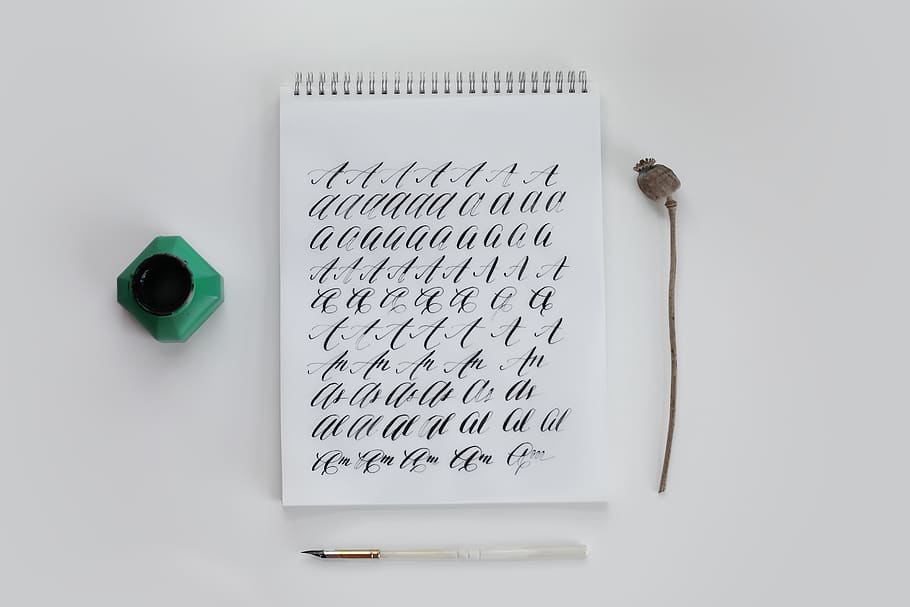 A A A A A A A
a a a a a a a a a a
a a a a a a a a a a
A A A A A A A A A
A A A A A A A
A A A A A A A
An An An An An
as as as as as as
al al al al al al al
Am Am Am Am Am